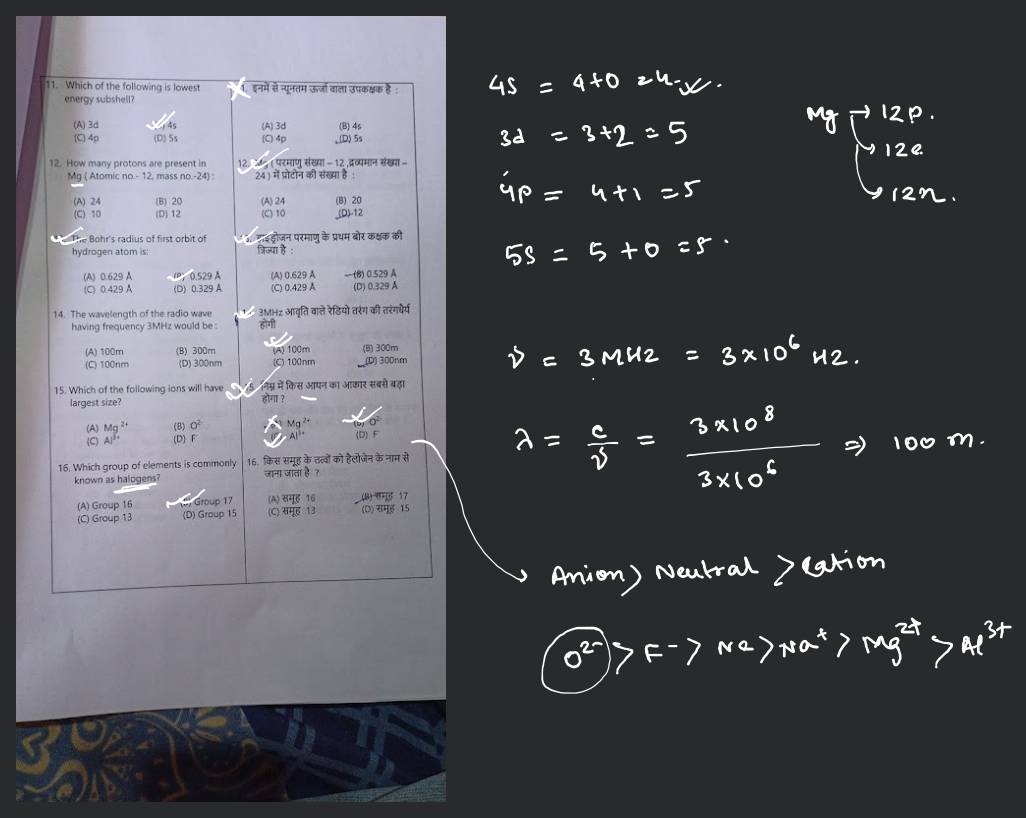 11. Which of the following is lowest
energy subshell?
(A) 3d 4s
(C) 4p (D) 5s
12. How many protons are present in
Mg ( Atomic no.- 12, mass no.-24) :
(A) 24 (B) 20
(C) 10 (D) 12
The Bohr's radius of first orbit of
hydrogen atom is:
(A) 0.629 Å (B) 0.529 Å
(C) 0.429 Å (D) 0.329 Å
14. The wavelength of the radio wave
having frequency 3MHz would be :
(A) 100m (B) 300m
(C) 100nm (D) 300nm
15. Which of the following ions will have
largest size?
(A) Mg 2+ (B) O2-
(C) Al3+ (D) F-
16. Which group of elements is commonly
known as halogens?
(A) Group 16 Group 17
(C) Group 13 (D) Group 15
इनमें से न्यूनतम ऊर्जा वाला उपकक्षक है :
(A) 3d (B) 4s
(C) 4p (D) 5s
12. ( परमाणु संख्या – 12 ,द्रव्यमान संख्या –
24 ) में प्रोटोन की संख्या है :
(A) 24 (B) 20
(C) 10 (D) 12
हाइड्रोजन परमाणु के प्रथम बोर कक्षक की
त्रिज्या है :
(A) 0.629 Å (B) 0.529 Å
(C) 0.429 Å (D) 0.329 Å
3MHz आवृति वाले रेडियो तरंग की तरंगधैर्य
होगी
(A) 100m (B) 300m
(C) 100nm (D) 300nm
निम्न में किस आयन का आकार सबसे बड़ा
होगा ?
Mg 2+ O2-
Al3+ (D) F-
16. किस समूह के तत्वों को हैलोजेन के नाम से
जाना जाता है ?
(A) समूह 16 (B) समूह 17
(C) समूह 13 (D) समूह 15
4s = 4+0 = 4
3d = 3+2 = 5
4p = 4+1 = 5
5s = 5+0 = 5
Mg → 12p.
→ 12e
→ 12n.
ν = 3MHz = 3×10⁶ Hz.
λ = c/ν = 3×10⁸/3×10⁶ ⇒ 100 m.
Anion > Neutral > Cation
O²⁻ > F⁻ > Ne > Na⁺ > Mg²⁺ > Al³⁺